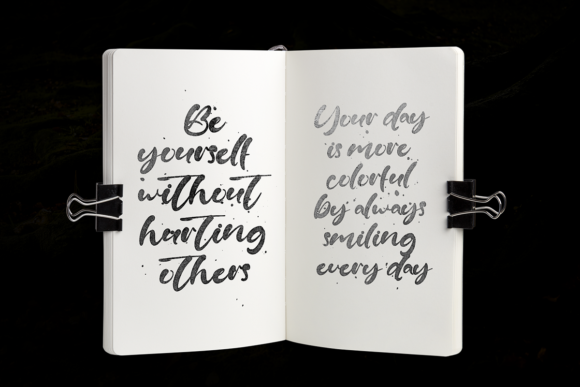 Be
yourself
without
harting
others
Your day
is more
colorful
by always
smiling
every day